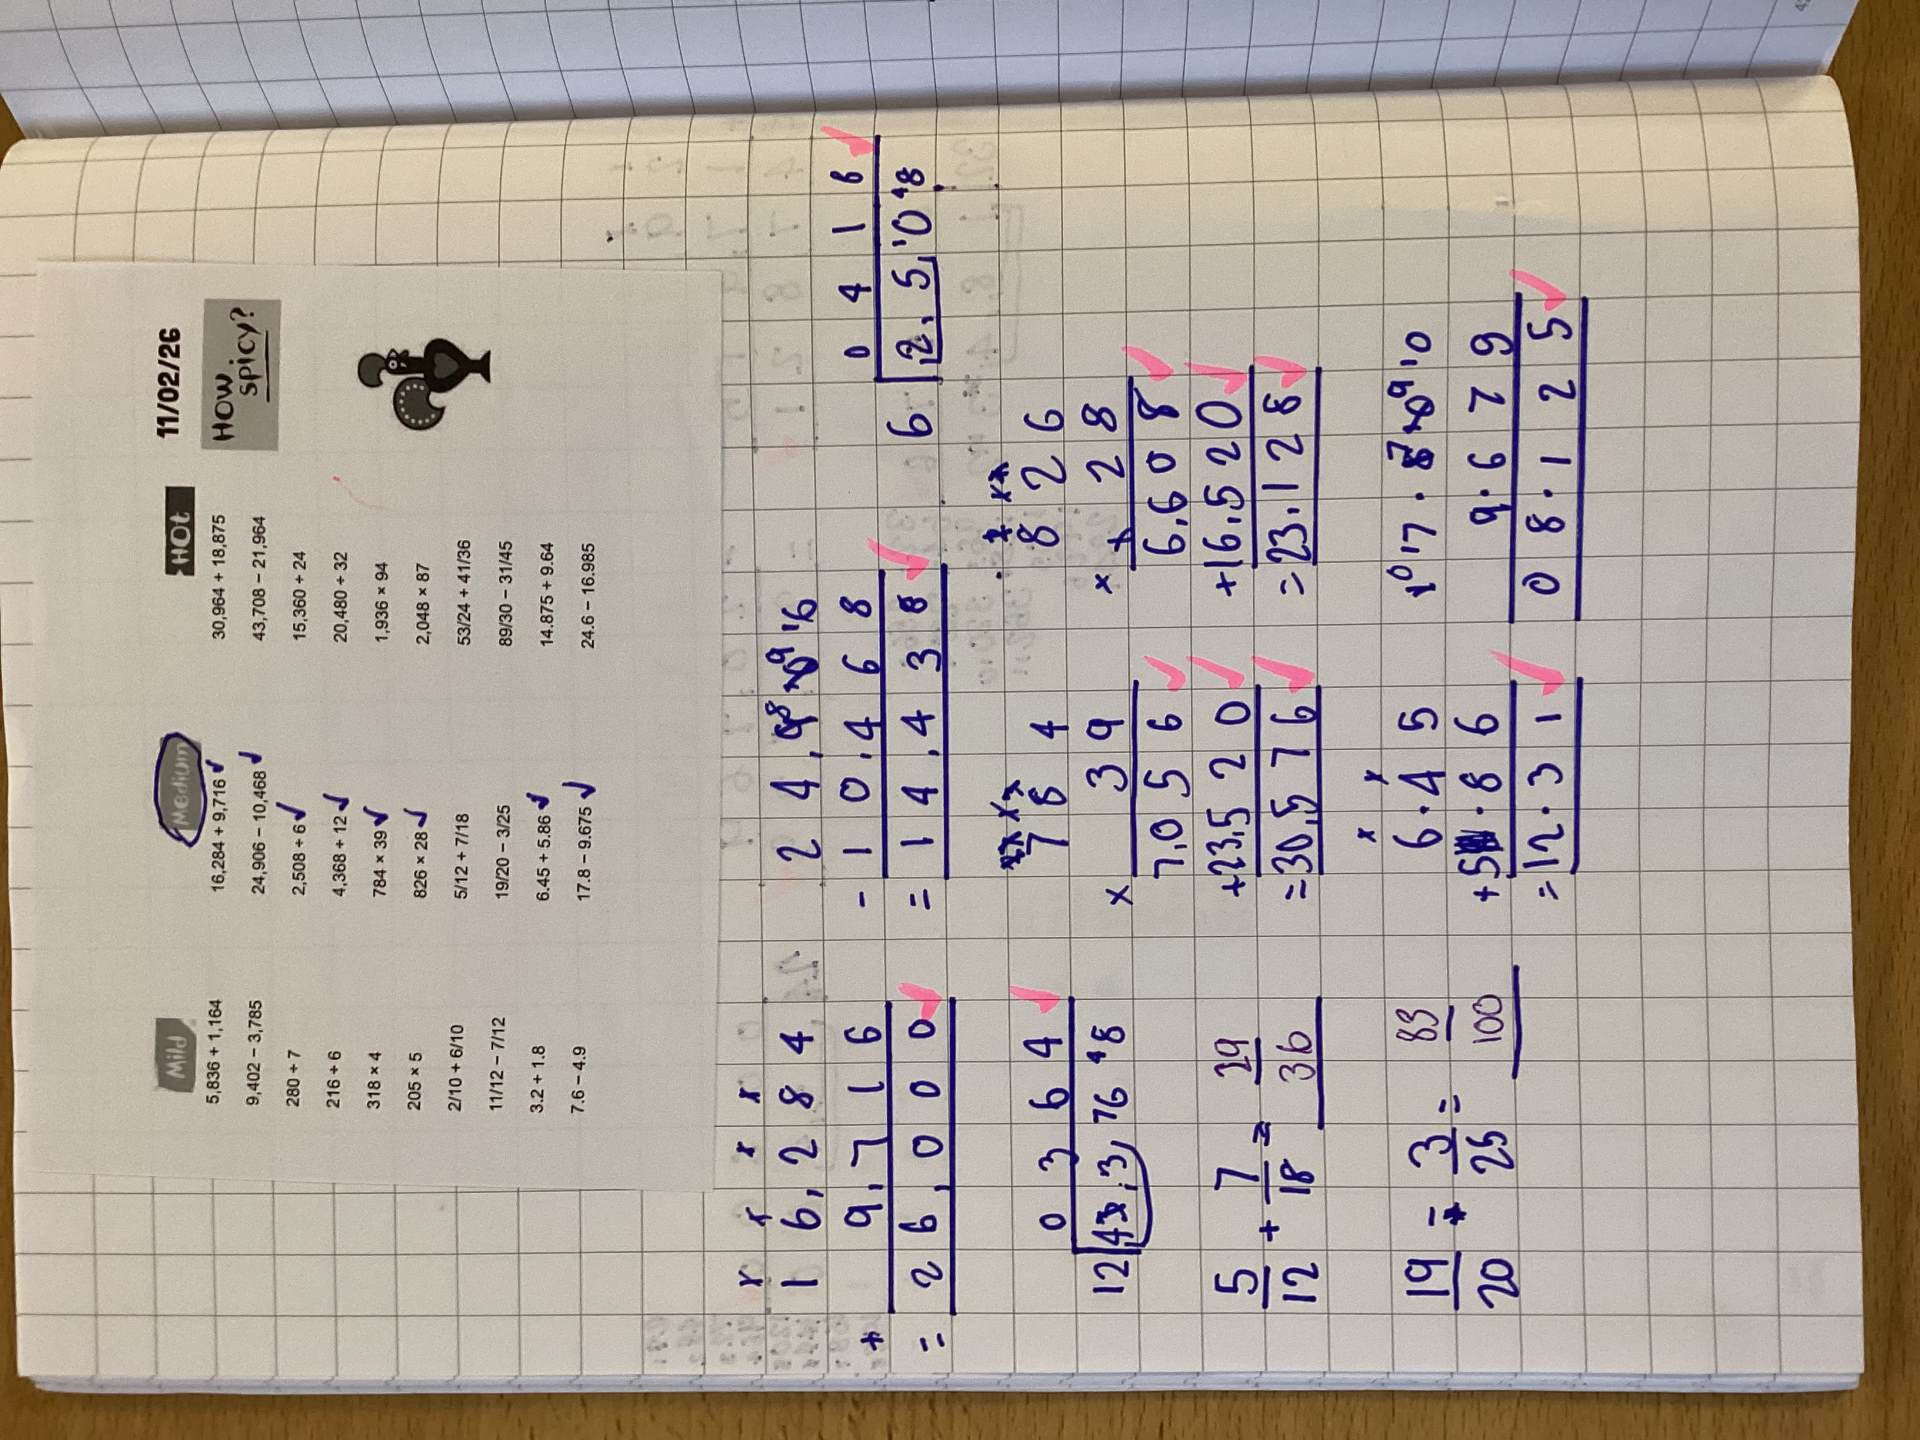 11/02/26
HOW
spicy?
Mild
5,836 + 1,164
9,402 − 3,785
280 ÷ 7
216 ÷ 6
318 × 4
205 × 5
2/10 + 6/10
11/12 − 7/12
3.2 + 1.8
7.6 − 4.9
Medium
16,284 + 9,716 ✓
24,906 − 10,468 ✓
2,508 ÷ 6 ✓
4,368 ÷ 12 ✓
784 × 39 ✓
826 × 28 ✓
5/12 + 7/18
19/20 − 3/25
6.45 + 5.86 ✓
17.8 − 9.675 ✓
HOt
30,964 + 18,875
43,708 − 21,964
15,360 ÷ 24
20,480 ÷ 32
1,936 × 94
2,048 × 87
53/24 + 41/36
89/30 − 31/45
14.875 + 9.64
24.6 − 16.985
16,284
+ 9,716
= 26,000
24,906
- 10,468
= 14,438
0416
6 2,508
0364
12 4,368
784
× 39
7,056
+23,520
=30,576
826
× 28
6,608
+16,520
=23,128
5/12 + 7/18 = 29/36
6.45
+5.86
=12.31
17.80
9.679
08.125
19/20 - 3/25 = 83/100